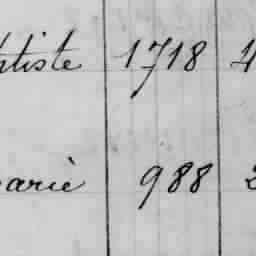 ptiste 1718 4
arie 988 2